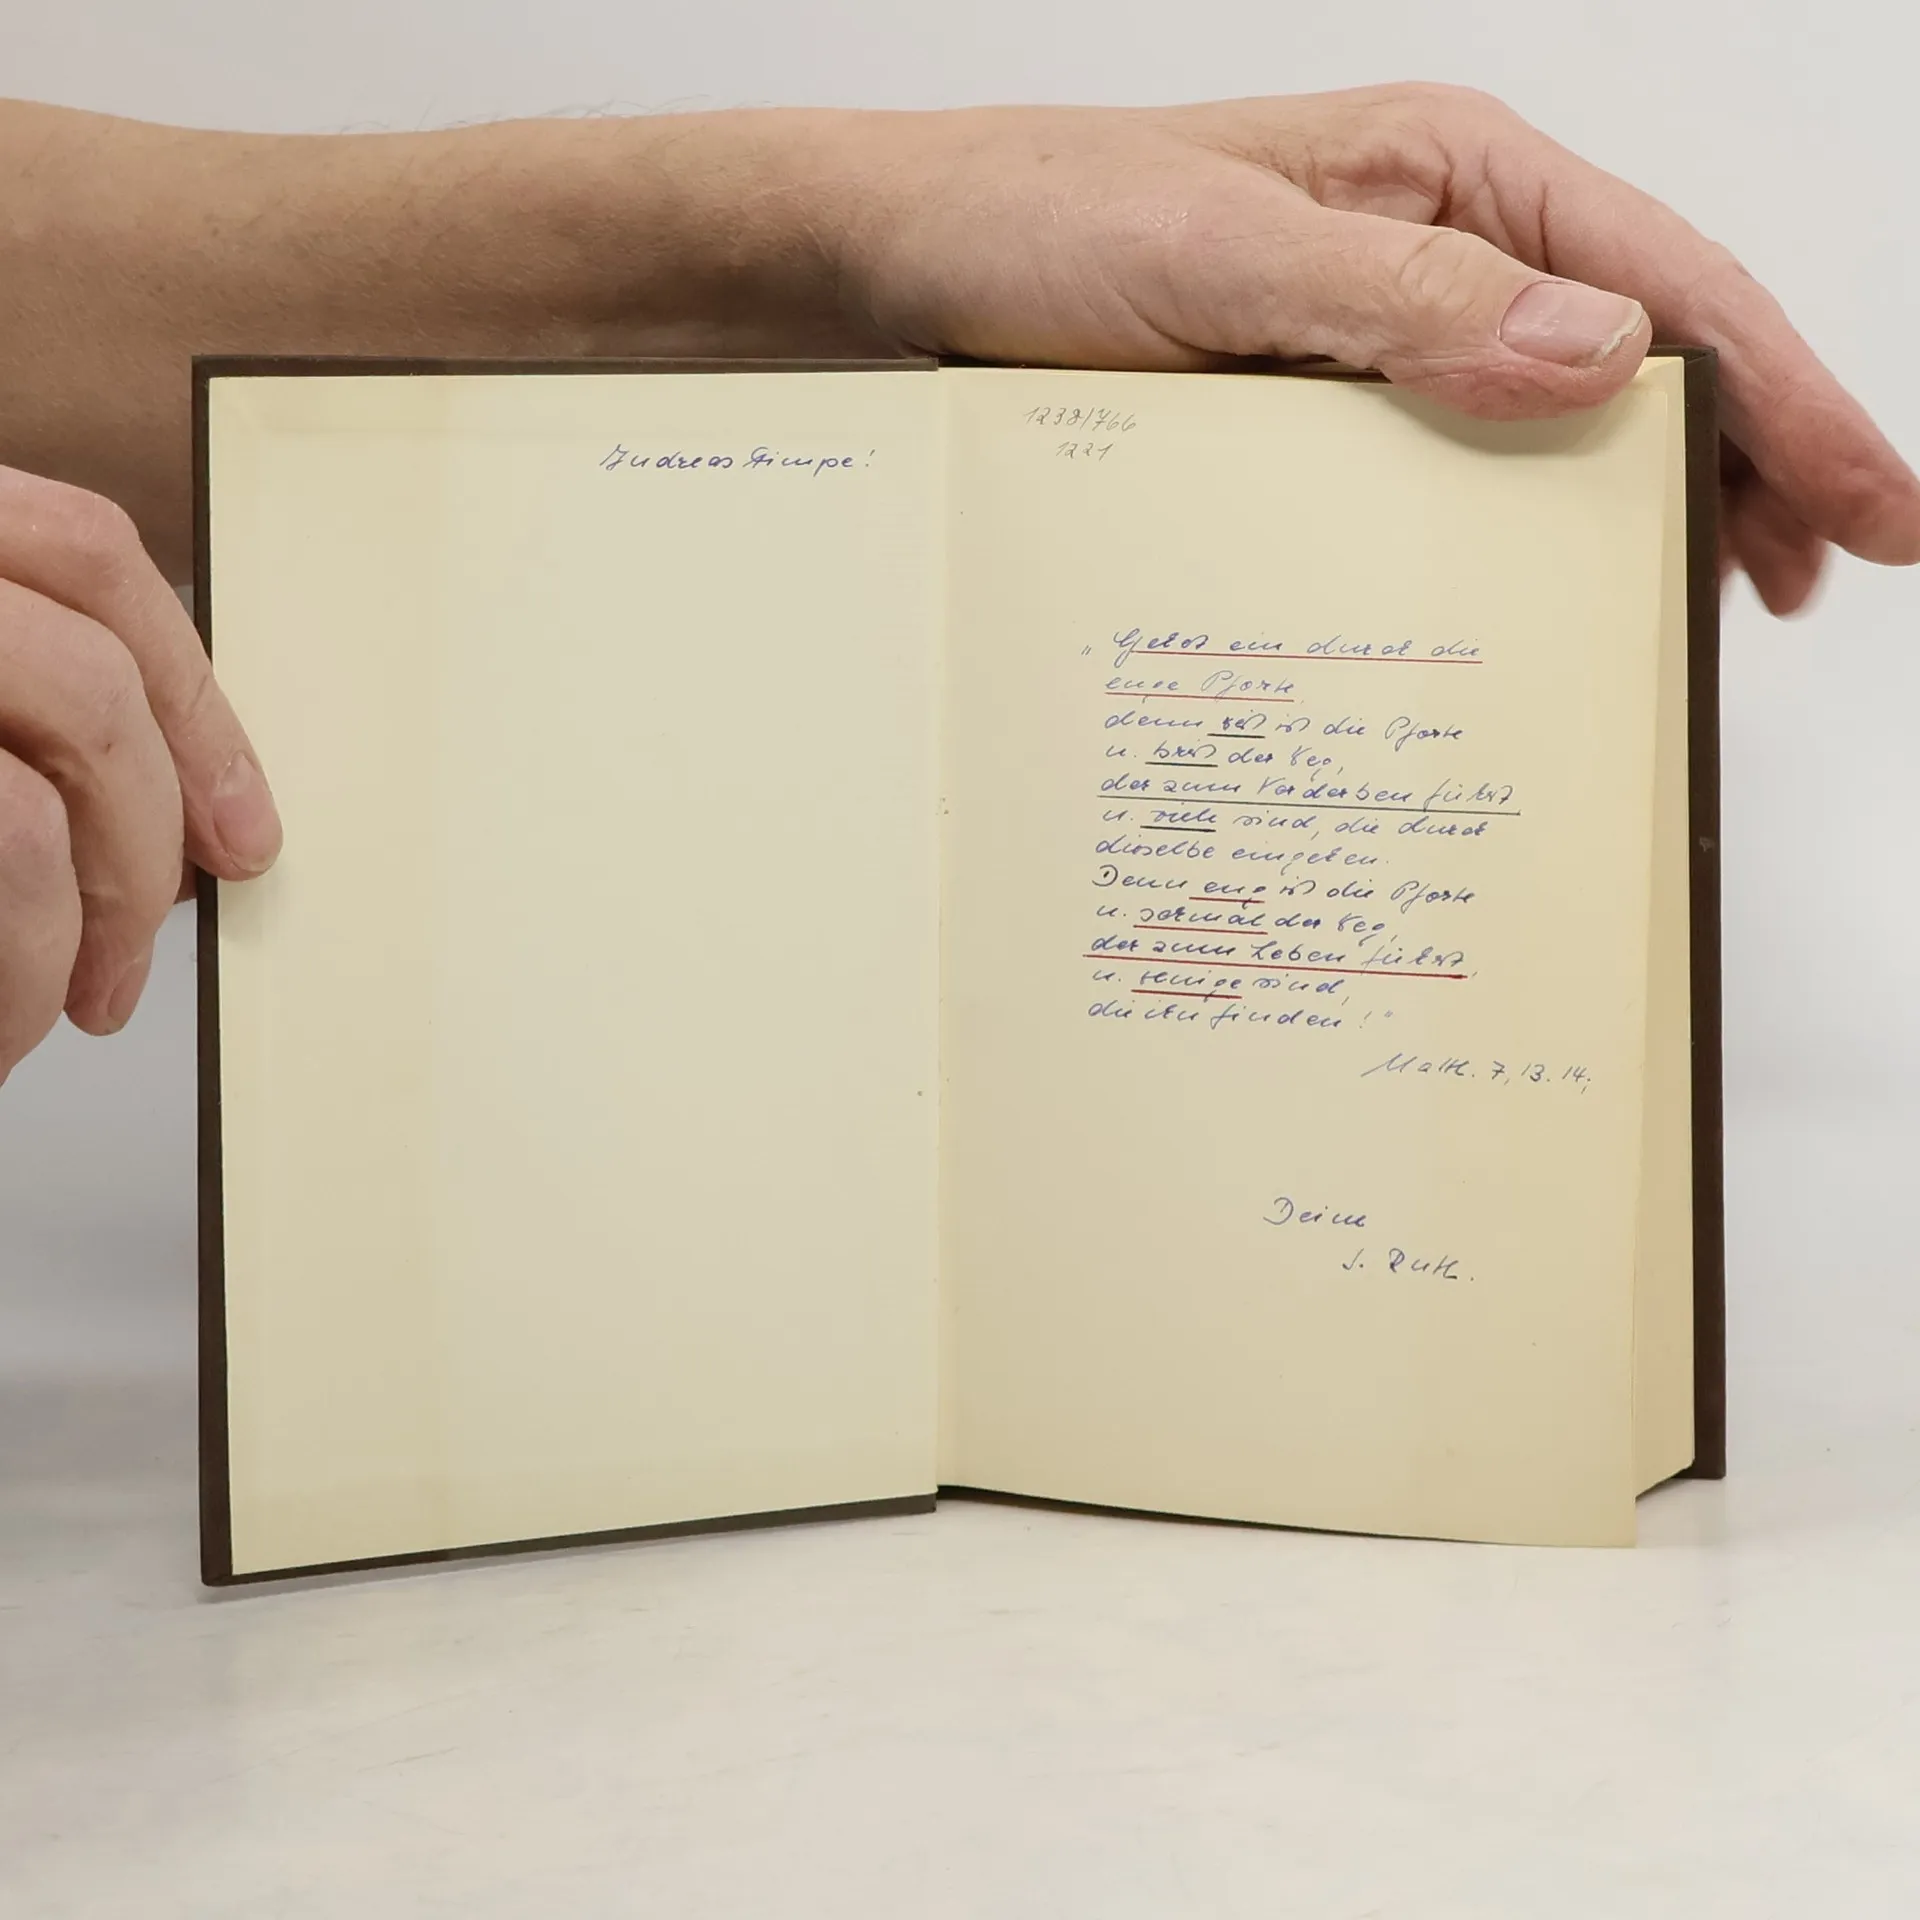 Andreas Timpe!
1238/766
1221
„Geht ein durch die
enge Pforte,
denn weit ist die Pforte
u. breit der Weg,
der zum Verderben führt,
u. viele sind, die durch
dieselbe eingehen.
Denn eng ist die Pforte
u. schmal der Weg,
der zum Leben führt,
u. wenige sind,
die ihn finden!"
Matth. 7, 13. 14;
Deine
S. Ruth.